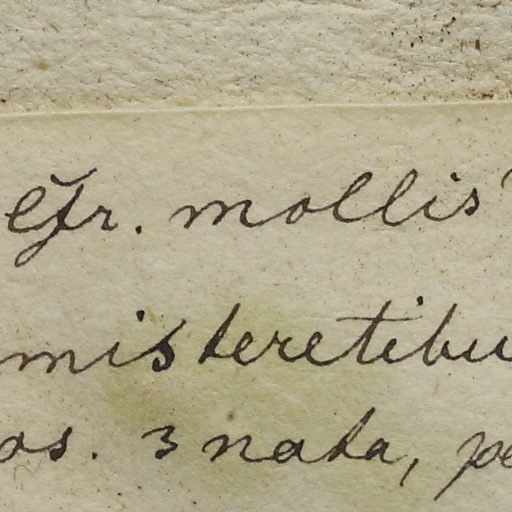 Cfr. mollis
mis teretibu
os. 3 nata, pe